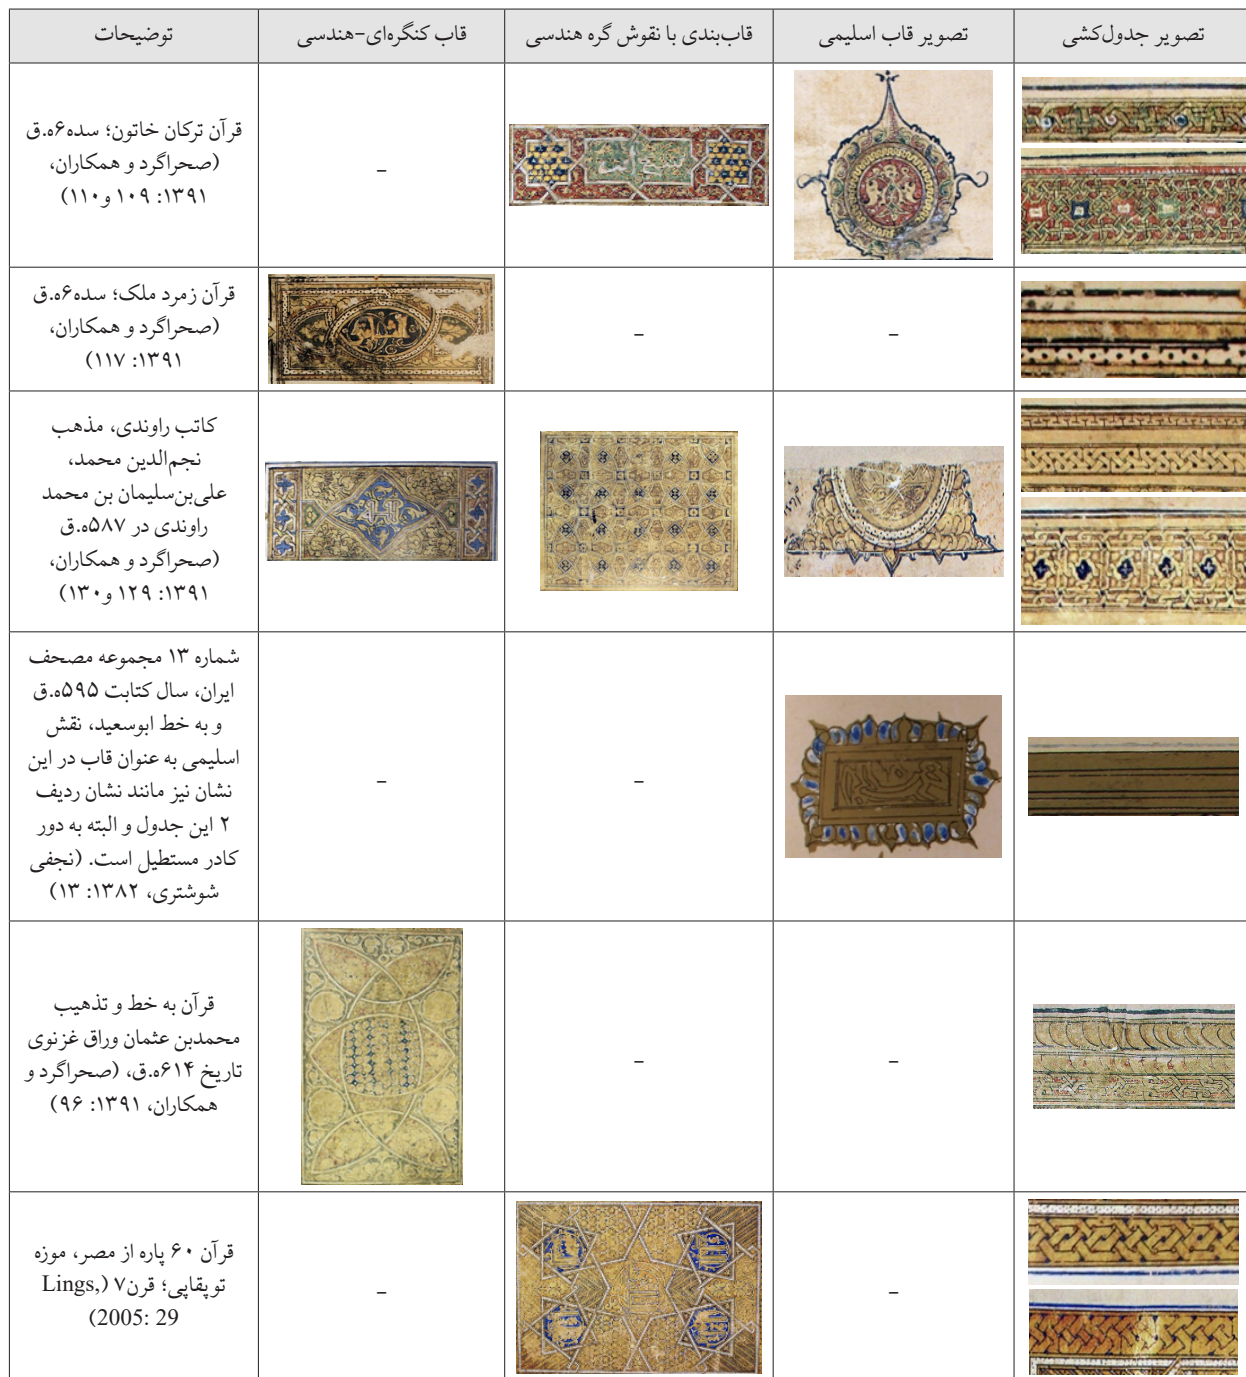 تصویر جدول‌کشی
تصویر قاب اسلیمی
قاب‌بندی با نقوش گره هندسی
قاب کنگره‌ای-هندسی
توضیحات
–
قرآن ترکان خاتون؛ سده۶ه‍.ق
(صحراگرد و همکاران،
۱۳۹۱: ۱۰۹ و۱۱۰)
–
–
قرآن زمرد ملک؛ سده۶ه‍.ق
(صحراگرد و همکاران،
۱۳۹۱: ۱۱۷)
کاتب راوندی، مذهب
نجم‌الدین محمد،
علی‌بن‌سلیمان بن محمد
راوندی در ۵۸۷ه‍.ق
(صحراگرد و همکاران،
۱۳۹۱: ۱۲۹ و۱۳۰)
–
–
شماره ۱۳ مجموعه مصحف
ایران، سال کتابت ۵۹۵ه‍.ق
و به خط ابوسعید، نقش
اسلیمی به عنوان قاب در این
نشان نیز مانند نشان ردیف
۲ این جدول و البته به دور
کادر مستطیل است. (نجفی
شوشتری، ۱۳۸۲: ۱۳)
–
–
قرآن به خط و تذهیب
محمدبن عثمان وراق غزنوی
تاریخ ۶۱۴ه‍.ق، (صحراگرد و
همکاران، ۱۳۹۱: ۹۶)
–
–
قرآن ۶۰ پاره از مصر، موزه
توپقاپی؛ قرن۷ (Lings,
2005: 29)